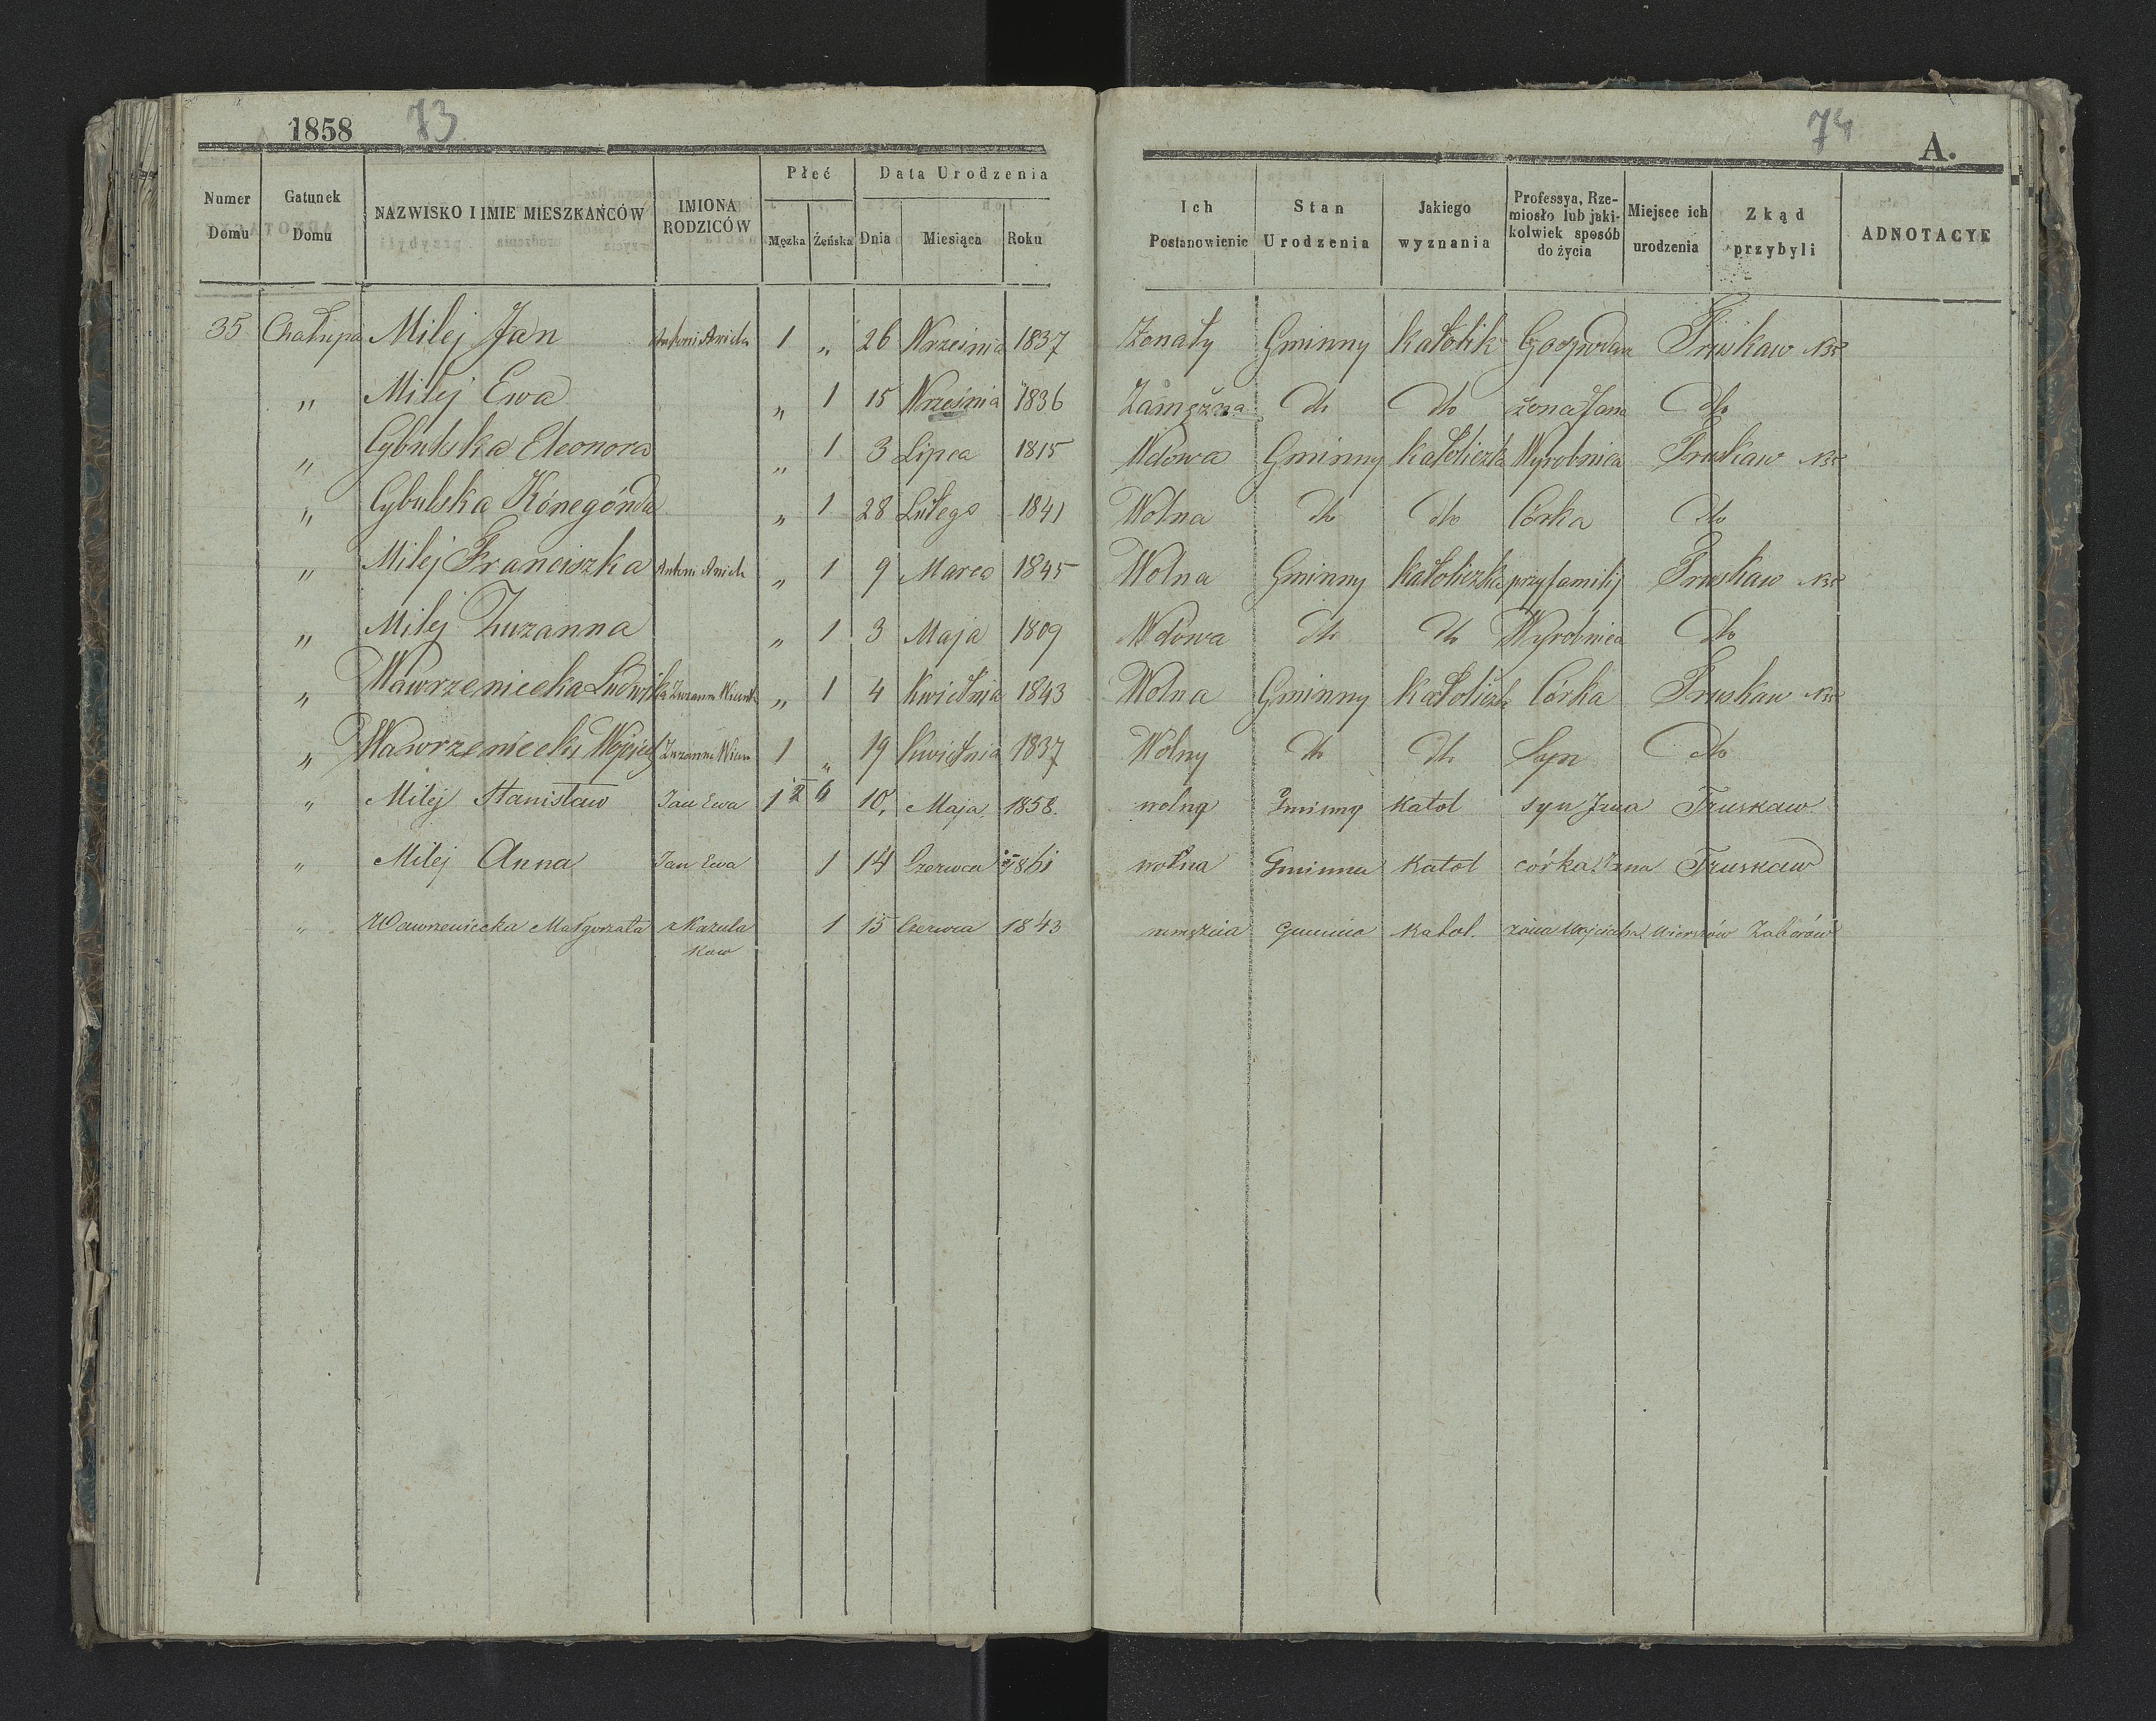 1858 73.
74
A.
Numer Domu
Gatunek Domu
NAZWISKO I IMIE MIESZKAŃCÓW
IMIONA RODZICÓW
Płeć
Męzka Żeńska
Data Urodzenia
Dnia Miesiąca Roku
Ich Postanowienie
Stan Urodzenia
Jakiego wyznania
Professya, Rzemiosło lub jakikolwiek sposób do życia
Miejsce ich urodzenia
Zkąd przybyli
ADNOTACYE
35 Chałupa Milej Jan 1 „ 26 Września 1837 Żonaty Gminny Katolik Truskaw N35
„ Milej Ewa „ 1 15 Września 1836 Zamężna dto dto żona Jana dto
„ Cybulska Eleonora „ 1 3 Lipca 1815 Wdowa Gminny Katoliczka Wyrobnica Truskaw N35
„ Cybulska Kónegónda „ 1 28 Lutego 1841 Wolna dto dto Córka dto
„ Milej Franciszka „ 1 9 Marca 1845 Wolna Gminny Katoliczka przy familij Truskaw N35
„ Milej Zuzanna „ 1 3 Maja 1809 Wdowa dto dto Wyrobnica dto
„ Wawrzeniecka Ludwika Zuzanna „ 1 4 Kwietnia 1843 Wolna Gminny Katoliczk Córka Truskaw N35
„ Wawrzeniecki Wojciech Zuzanna 1 „ 19 Kwietnia 1837 Wolny dto dto Syn dto
„ Milej Stanisław Jan Ewa 1 10, Maja 1858. wolny Gminny Katol syn Jana Truskaw
„ Milej Anna Jan Ewa 1 14 Czerwca 1861 wolna Gminna Katol córka Jana Truskaw
„ Wawrzeniecka Małgorzata 1 15 Czerwca 1843 Gminna Katol. żona Wojciecha Wierszów Zaborów